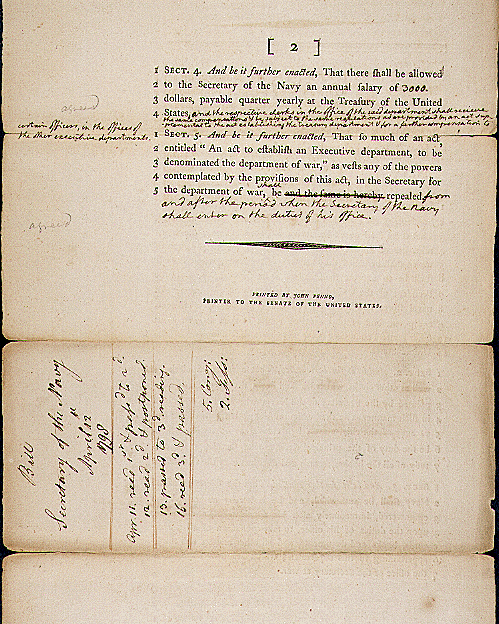 [ 2 ]
1 SECT. 4. And be it further enacted, That there shall be allowed
2 to the Secretary of the Navy an annual salary of 3000.
3 dollars, payable quarter yearly at the Treasury of the United
4 States, and the respective clerks in the office of the said department shall receive
the same compensations & be subject to the same regulations as are provided by an act sup-
plemental to the act establishing the Treasury department & for a further compensation to
agreed
certain officers, in the offices of
the other executive departments.
1 SECT. 5. And be it further enacted, That so much of an act,
2 entitled "An act to establish an Executive department, to be
3 denominated the department of war," as vests any of the powers
4 contemplated by the provisions of this act, in the Secretary for
5 the department of war, shall be and the same is hereby repealed, from
and after the period when the Secretary of the Navy
shall enter on the duties of his office.
agreed
PRINTED BY JOHN FENNO,
PRINTER TO THE SENATE OF THE UNITED STATES.
Bill
Secretary of the Navy
April 12
1798
Apr. 11. read 1st & pass'd to 2d.
12. read 2d & postponed.
13. passed to 3d reading.
16. read 3d & passed.
5. Cong:
2. Sess: